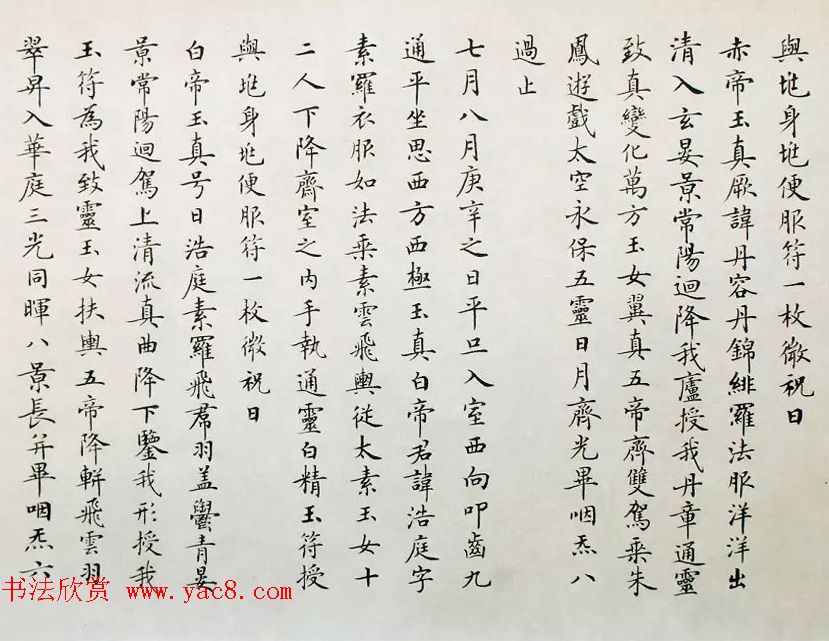 與地身地便服符一枚微祝曰
赤帝玉真厥諱丹容丹錦緋羅法服洋洋出
清入玄晏景常陽迴降我廬授我丹章通靈
致真變化萬方玉女翼真五帝齊雙駕乗朱
鳳遊戲太空永保五靈日月齊光畢咽炁八
過止
七月八月庚辛之日平旦入室西向叩齒九
通平坐思西方西極玉真白帝君諱浩庭字
素羅衣服如法乗素雲飛輿從太素玉女十
二人下降齋室之内手執通靈白精玉符授
與地身地便服符一枚微祝曰
白帝玉真号曰浩庭素羅飛帬羽盖鬱青晏
景常陽迴駕上清流真曲降下鑒我形授我
玉符為我致靈玉女扶輿五帝降軿飛雲羽
翠昇入華庭三光同暉八景長并畢咽炁六
书法欣赏 www.yac8.com